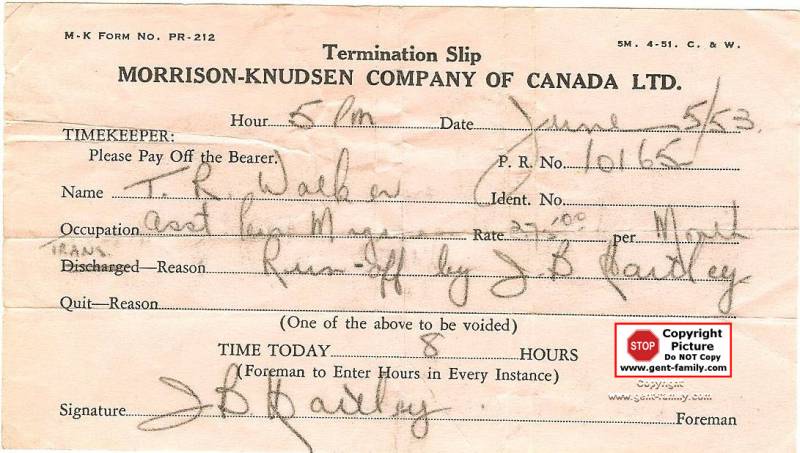 M-K FORM NO. PR-212
5M. 4-51. C. & W.
Termination Slip
MORRISON-KNUDSEN COMPANY OF CANADA LTD.
Hour 5 PM Date June 5/53.
TIMEKEEPER:
Please Pay Off the Bearer. P. R. No. 10165
Name T. R. Walker Ident. No.
Occupation asst Rate 275.00 per Month
TRANS.
Discharged—Reason Run-off by J B Hartley.
Quit—Reason
(One of the above to be voided)
TIME TODAY 8 HOURS
(Foreman to Enter Hours in Every Instance)
Signature J B Hartley. Foreman
STOP Copyright
Picture
Do NOT Copy
www.gent-family.com
Copyright
www.gent-family.com